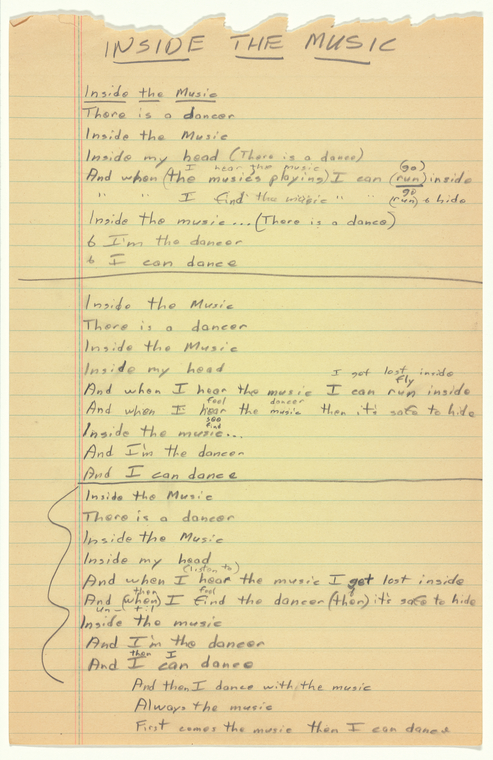 INSIDE THE MUSIC
Inside the Music
There is a dancer
Inside the Music
Inside my head (There is a dance)
I hear the music (go)
And when (the music's playing) I can (run) inside
" " I find the music " " (run) & hide
go
Inside the music... (There is a dance)
& I'm the dancer
& I can dance
Inside the Music
There is a dancer
Inside the Music
Inside my head
I get lost inside
fly
And when I hear the music I can run inside
feel dancer
And when I hear the music then it's safe to hide
see
find
Inside the music...
And I'm the dancer
And I can dance
Inside the Music
There is a dancer
Inside the Music
Inside my head
(listen to)
And when I hear the music I get lost inside
then feel
And (when) I find the dancer (then) it's safe to hide
un-til
Inside the music
And I'm the dancer
then I
And I can dance
And then I dance with the music
Always the music
First comes the music then I can dance